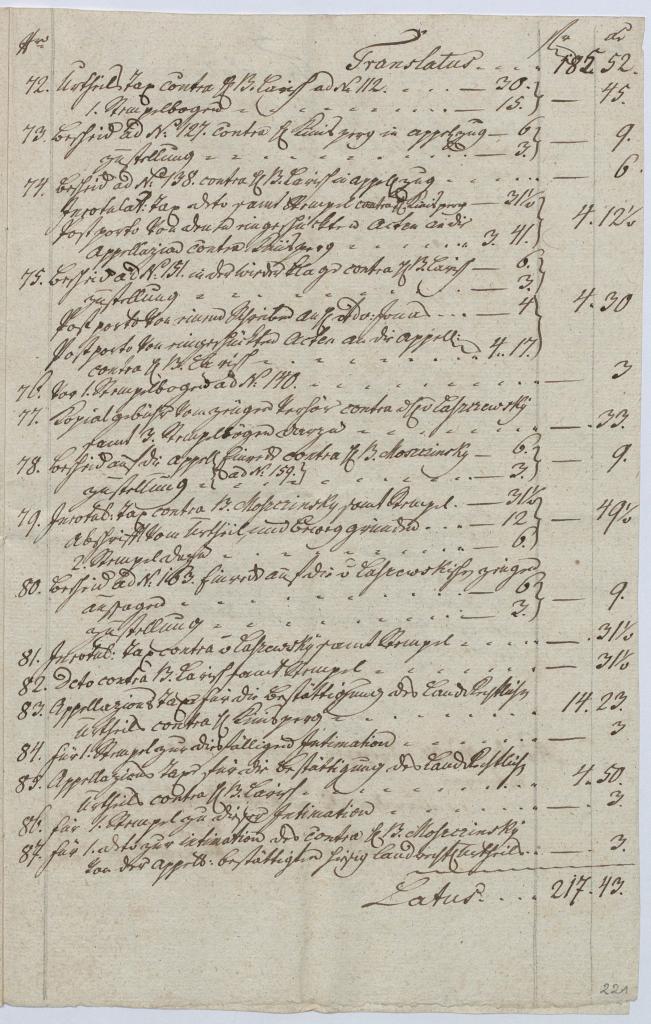 Nro fl kr
Translatus . . . . 185. 52.
72. Urtheils Tax contra H B. Larisch ad N. 112. — 30.
1. Stempelbogen — 15. } — 45.
73. Bescheid ad N. 127. contra H in appelzug — 6.
Zustellung — 3. } — 9.
74. Bescheid ad N. 138. contra H B. Larisch in appelzug — 6
Inrotulat: Tax deto samt Stempel contra — 31½
Postporto von denen eingeschickten Acten an die
Appellazion contra . . 3. 41. } 4. 12½
75. Bescheid ad N. 151. in der wieder klage contra H B. Larisch — 6.
Zustellung — 3.
Postporto von einem Schreiben an H — 4 } 4. 30
Postporto von eingeschickten Acten an die appell:
contra H B. Larisch 4. 17.
76. vor 1. Stempelbogen ad N. 140. — 3
77. Kopialgebühr vom zeugen Verhör contra H v Laszewsky
samt 3. Stempelbögen dazu — 33.
78. Bescheid auf die appell: Einrede contra H B. Moszczinsky — 6.
Zustellung {ad N. 159.} — 3. } — 9.
79. Inrotul: Tax contra B. Moszczinsky samt Stempel . — 31½
Abschrift vom Urtheil und beweggründen . . . — 12 } — 49½
2. Stempel dazu — 6.
80. Bescheid ad N. 163. Einrede auf die v Laszewskischen zeugen
aussagen — 6.
Zustellung — 3. } — 9.
81. Inrotul: Tax contra v Laszewsky samt Stempel — 31½
82. Deto contra B. Larisch samt Stempel — 31½
83. Appellazions Tax für die bestättigung des Landrechtlichen
Urtheils contra H 14. 23.
84. für 1. Stempel zur diesfälligen Intimation — 3
85. Appellazions Tax für die bestättigung des Landrechtlichen
Urtheils contra H B. Larisch 4. 50.
86. für 1. Stempel zu dieser Intimation — 3.
87. für 1. deto zur intimation des contra H B. Moszczinsky
von der appell: bestättigten hiesig landrechtl Urtheils . . — 3.
Latus . . . . 217. 43.
221